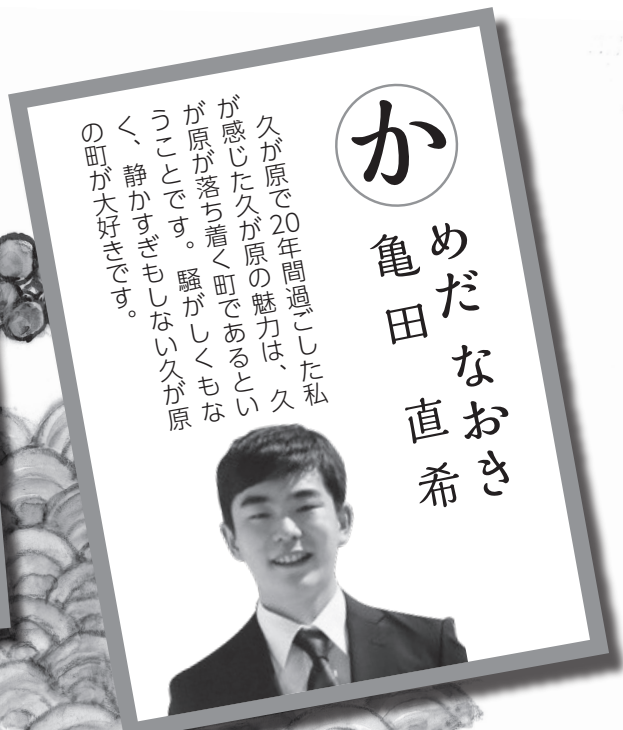 か
めだ なおき
亀田 直希
久が原で20年間過ごした私
が感じた久が原の魅力は、久
が原が落ち着く町であるとい
うことです。騒がしくもな
く、静かすぎもしない久が原
の町が大好きです。